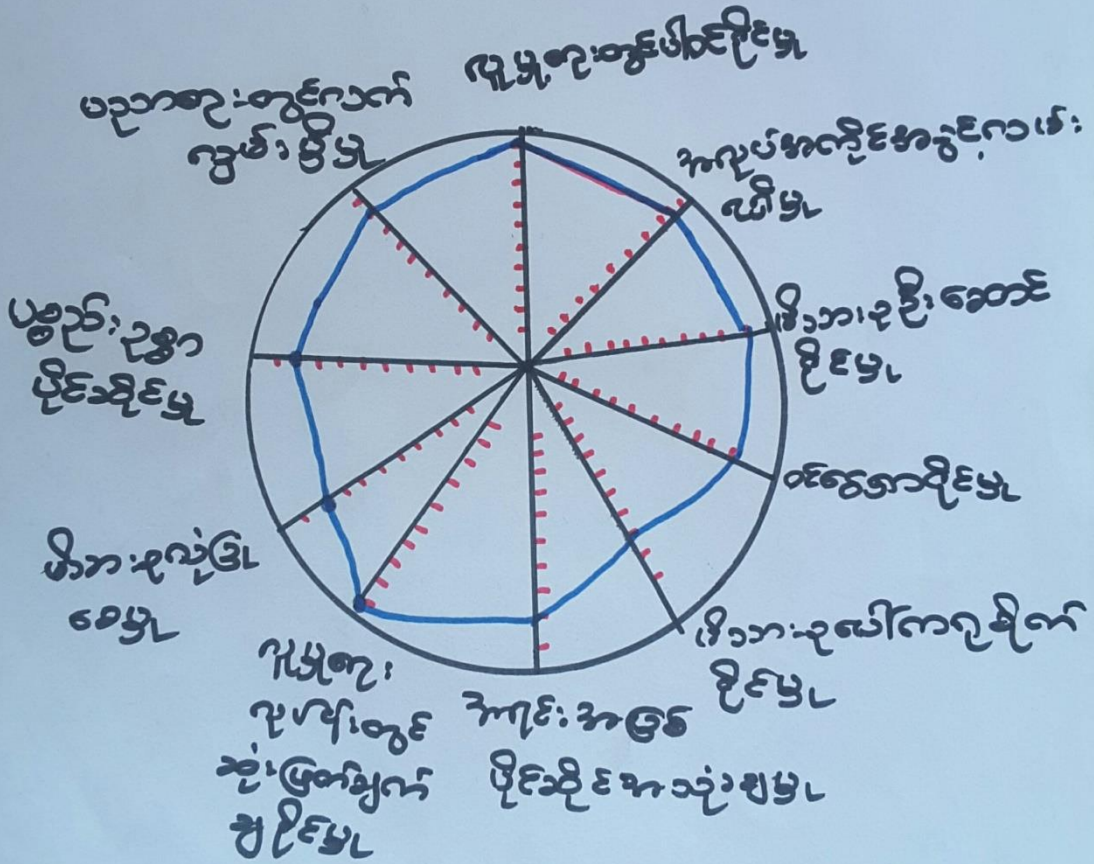 လူမှုရေးတွင်ပါဝင်နိုင်မှု
အလုပ်အကိုင်အခွင့်လမ်း
ရရှိမှု
မိသားစုဦးဆောင်
နိုင်မှု
ဝင်ငွေရှာနိုင်မှု
မိသားစုပေါ်ဂရုစိုက်
နိုင်မှု
အရင်းအမြစ်
ပိုင်ဆိုင်အသုံးချမှု
လူမှုရေး
လုပ်ငန်းတွင်
ဆုံးဖြတ်ချက်
ချနိုင်မှု
မိသားစုလုံခြုံ
စေမှု
ပစ္စည်းဥစ္စာ
ပိုင်ဆိုင်မှု
ပညာရေးတွင်လက်
လွှမ်းမှီမှု